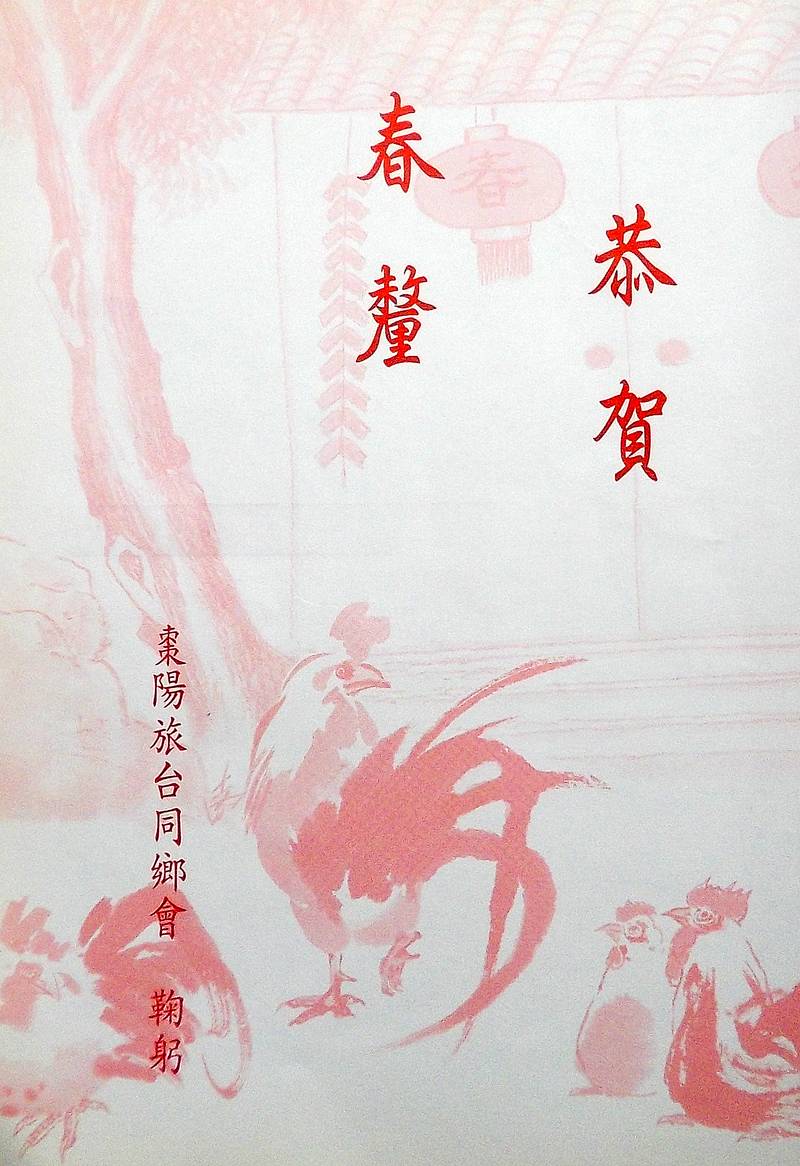 恭賀
春釐
棗陽旅台同鄉會 鞠躬
春